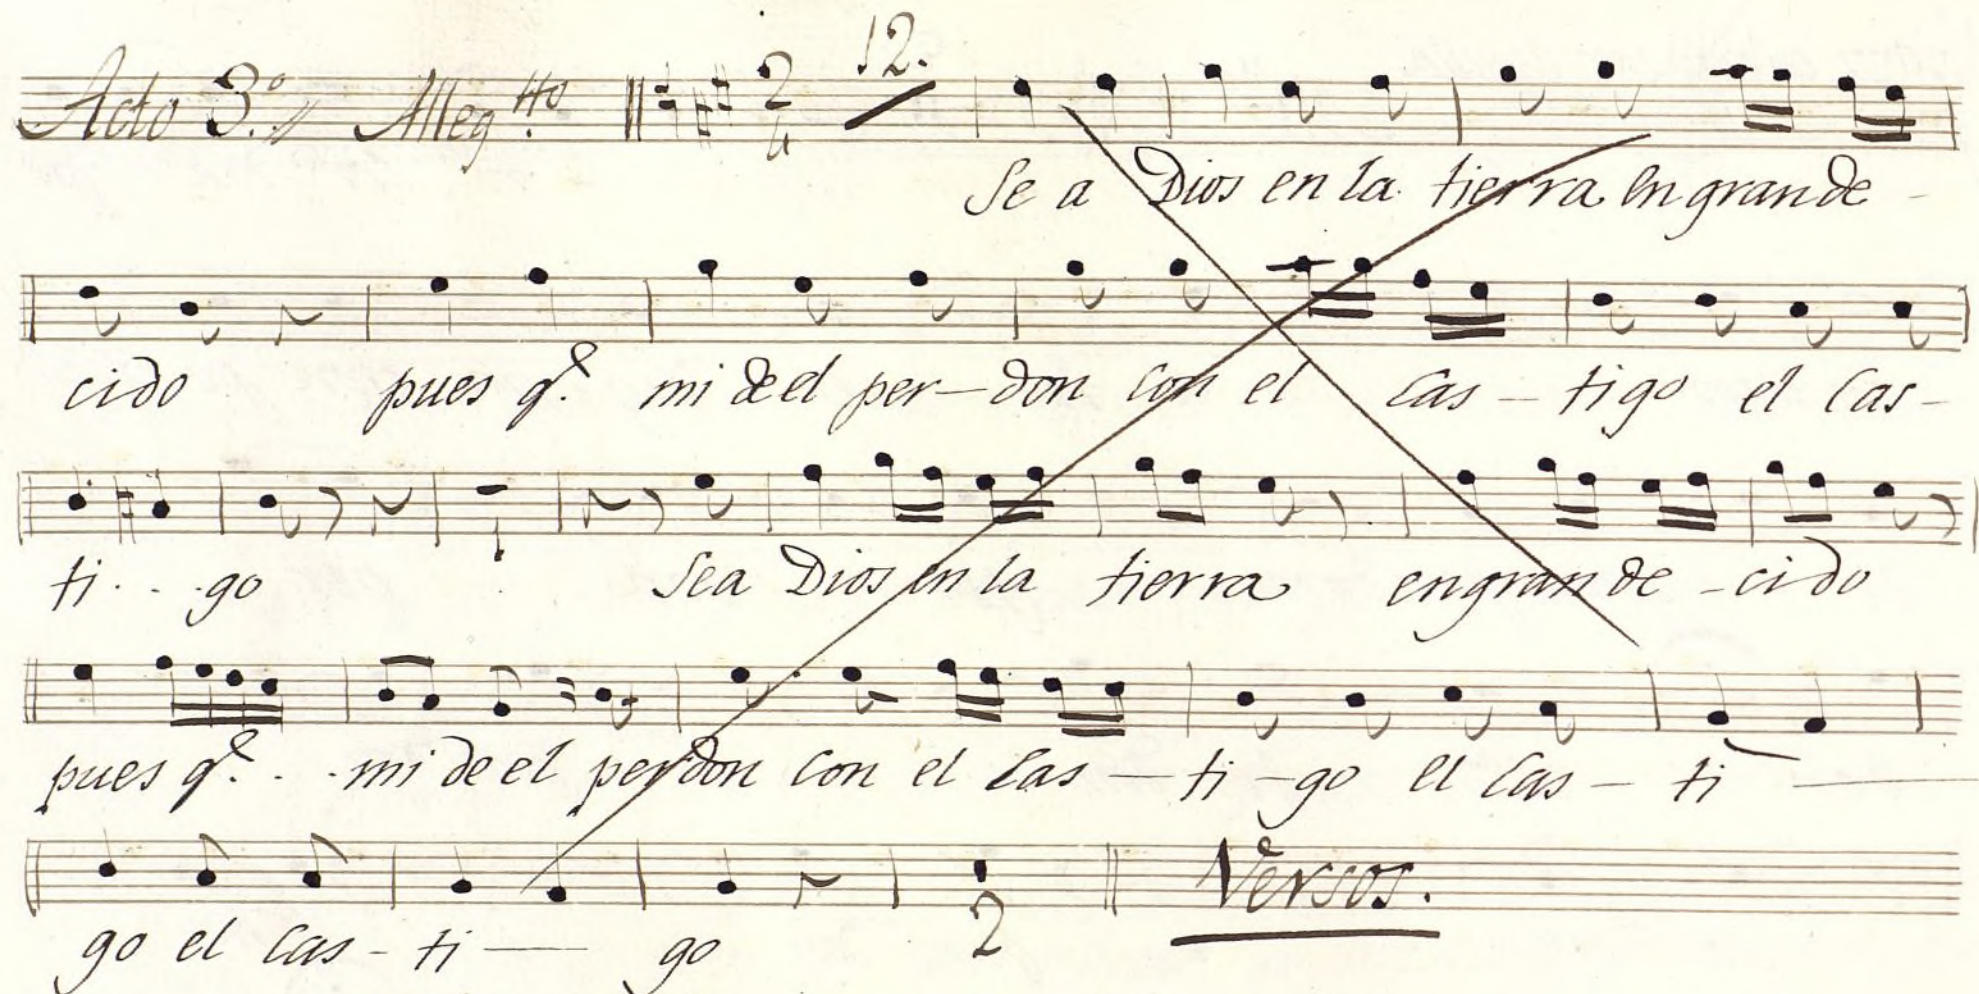 Acto 3.º Alleg.tto 2 4 12.
Se a Dios en la tierra en gran de -
cido pues q.e mi de el per - don con el Cas - tigo el Cas -
ti . . . go Sea Dios en la tierra en gran de - cido
pues q.e . . . mi de el perdon Con el Cas - ti - go el Cas - ti -
2 Versos.
go el Cas - ti - go